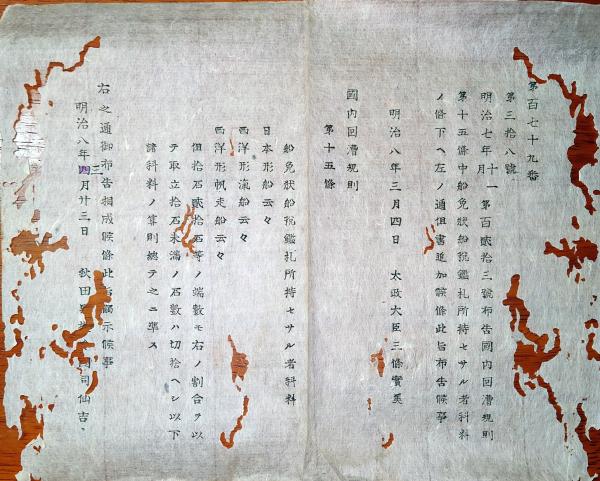 第百七十九番
第三拾八號
明治七年十一月第百貳拾三號布告國内回漕規則
第十五條中船免狀船税鑑札所持セサル者科料
ノ條下ヘ左ノ通但書追加候條此旨布告候事
明治八年三月四日 太政大臣三條實美
國内回漕規則
第十五條
船免狀船税鑑札所持セサル者科料
日本形船云々
西洋形滊船云々
西洋形帆走船云々
但拾石貳拾石等ノ端數モ右ノ割合ヲ以
テ取立拾石未滿ノ石數ハ切捨ヘシ以下
諸科料ノ算則總テ之ニ準ス
右之通御布告相成候條此旨觸示候事
明治八年三月廿三日 秋田縣 司仙吉